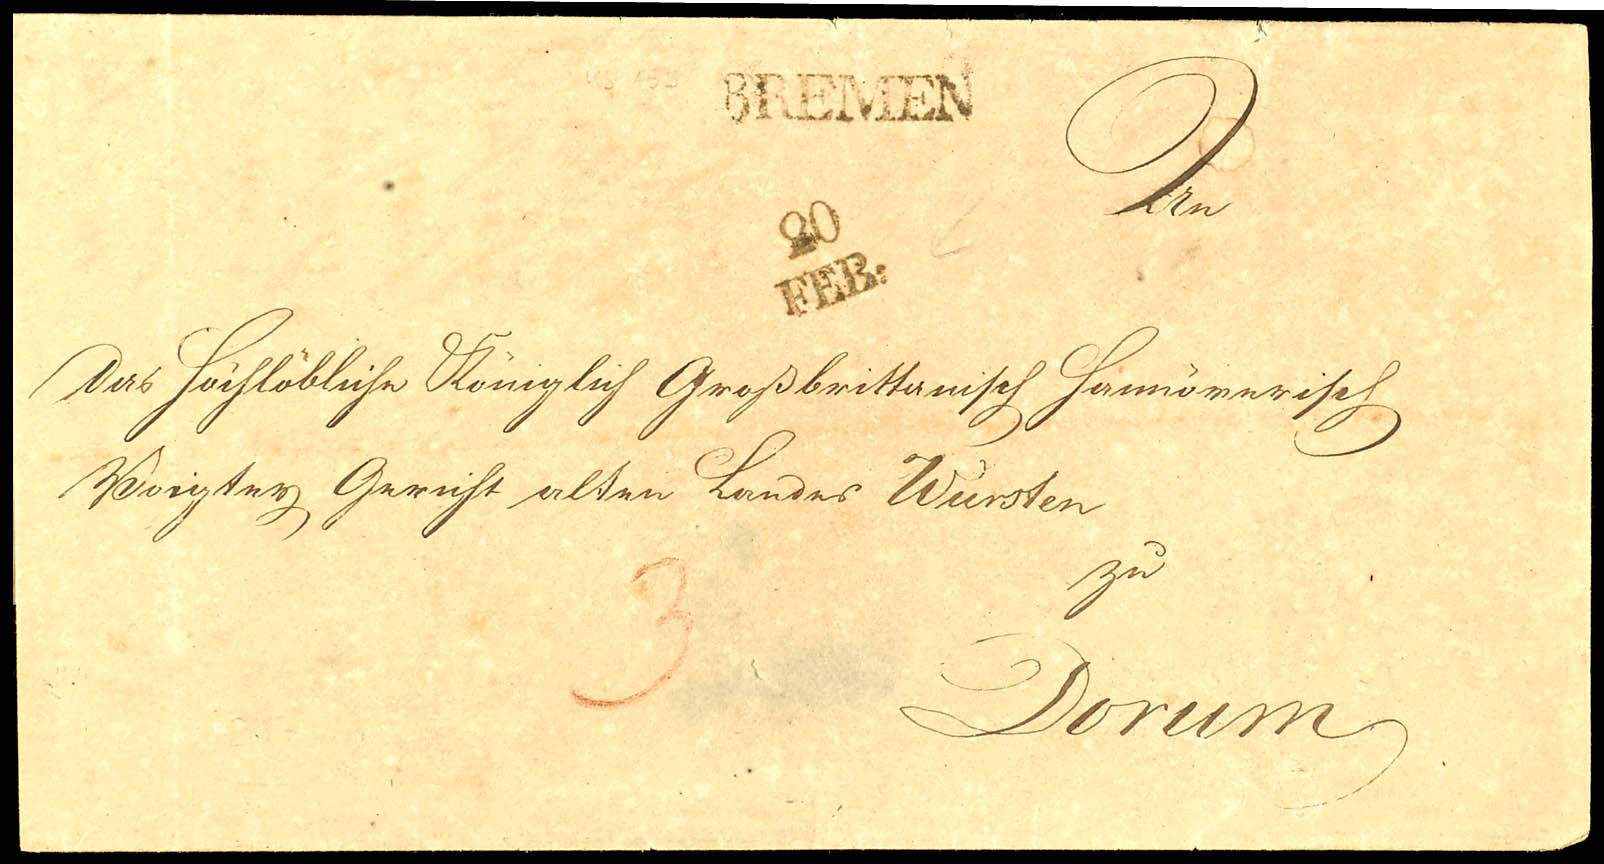 BREMEN
An
20
FEB:
Das Hochlöbliche Königlich Großbrittanisch Hannöverisch
Voigtey Gericht alten Landes Wursten
zu
3
Dorum